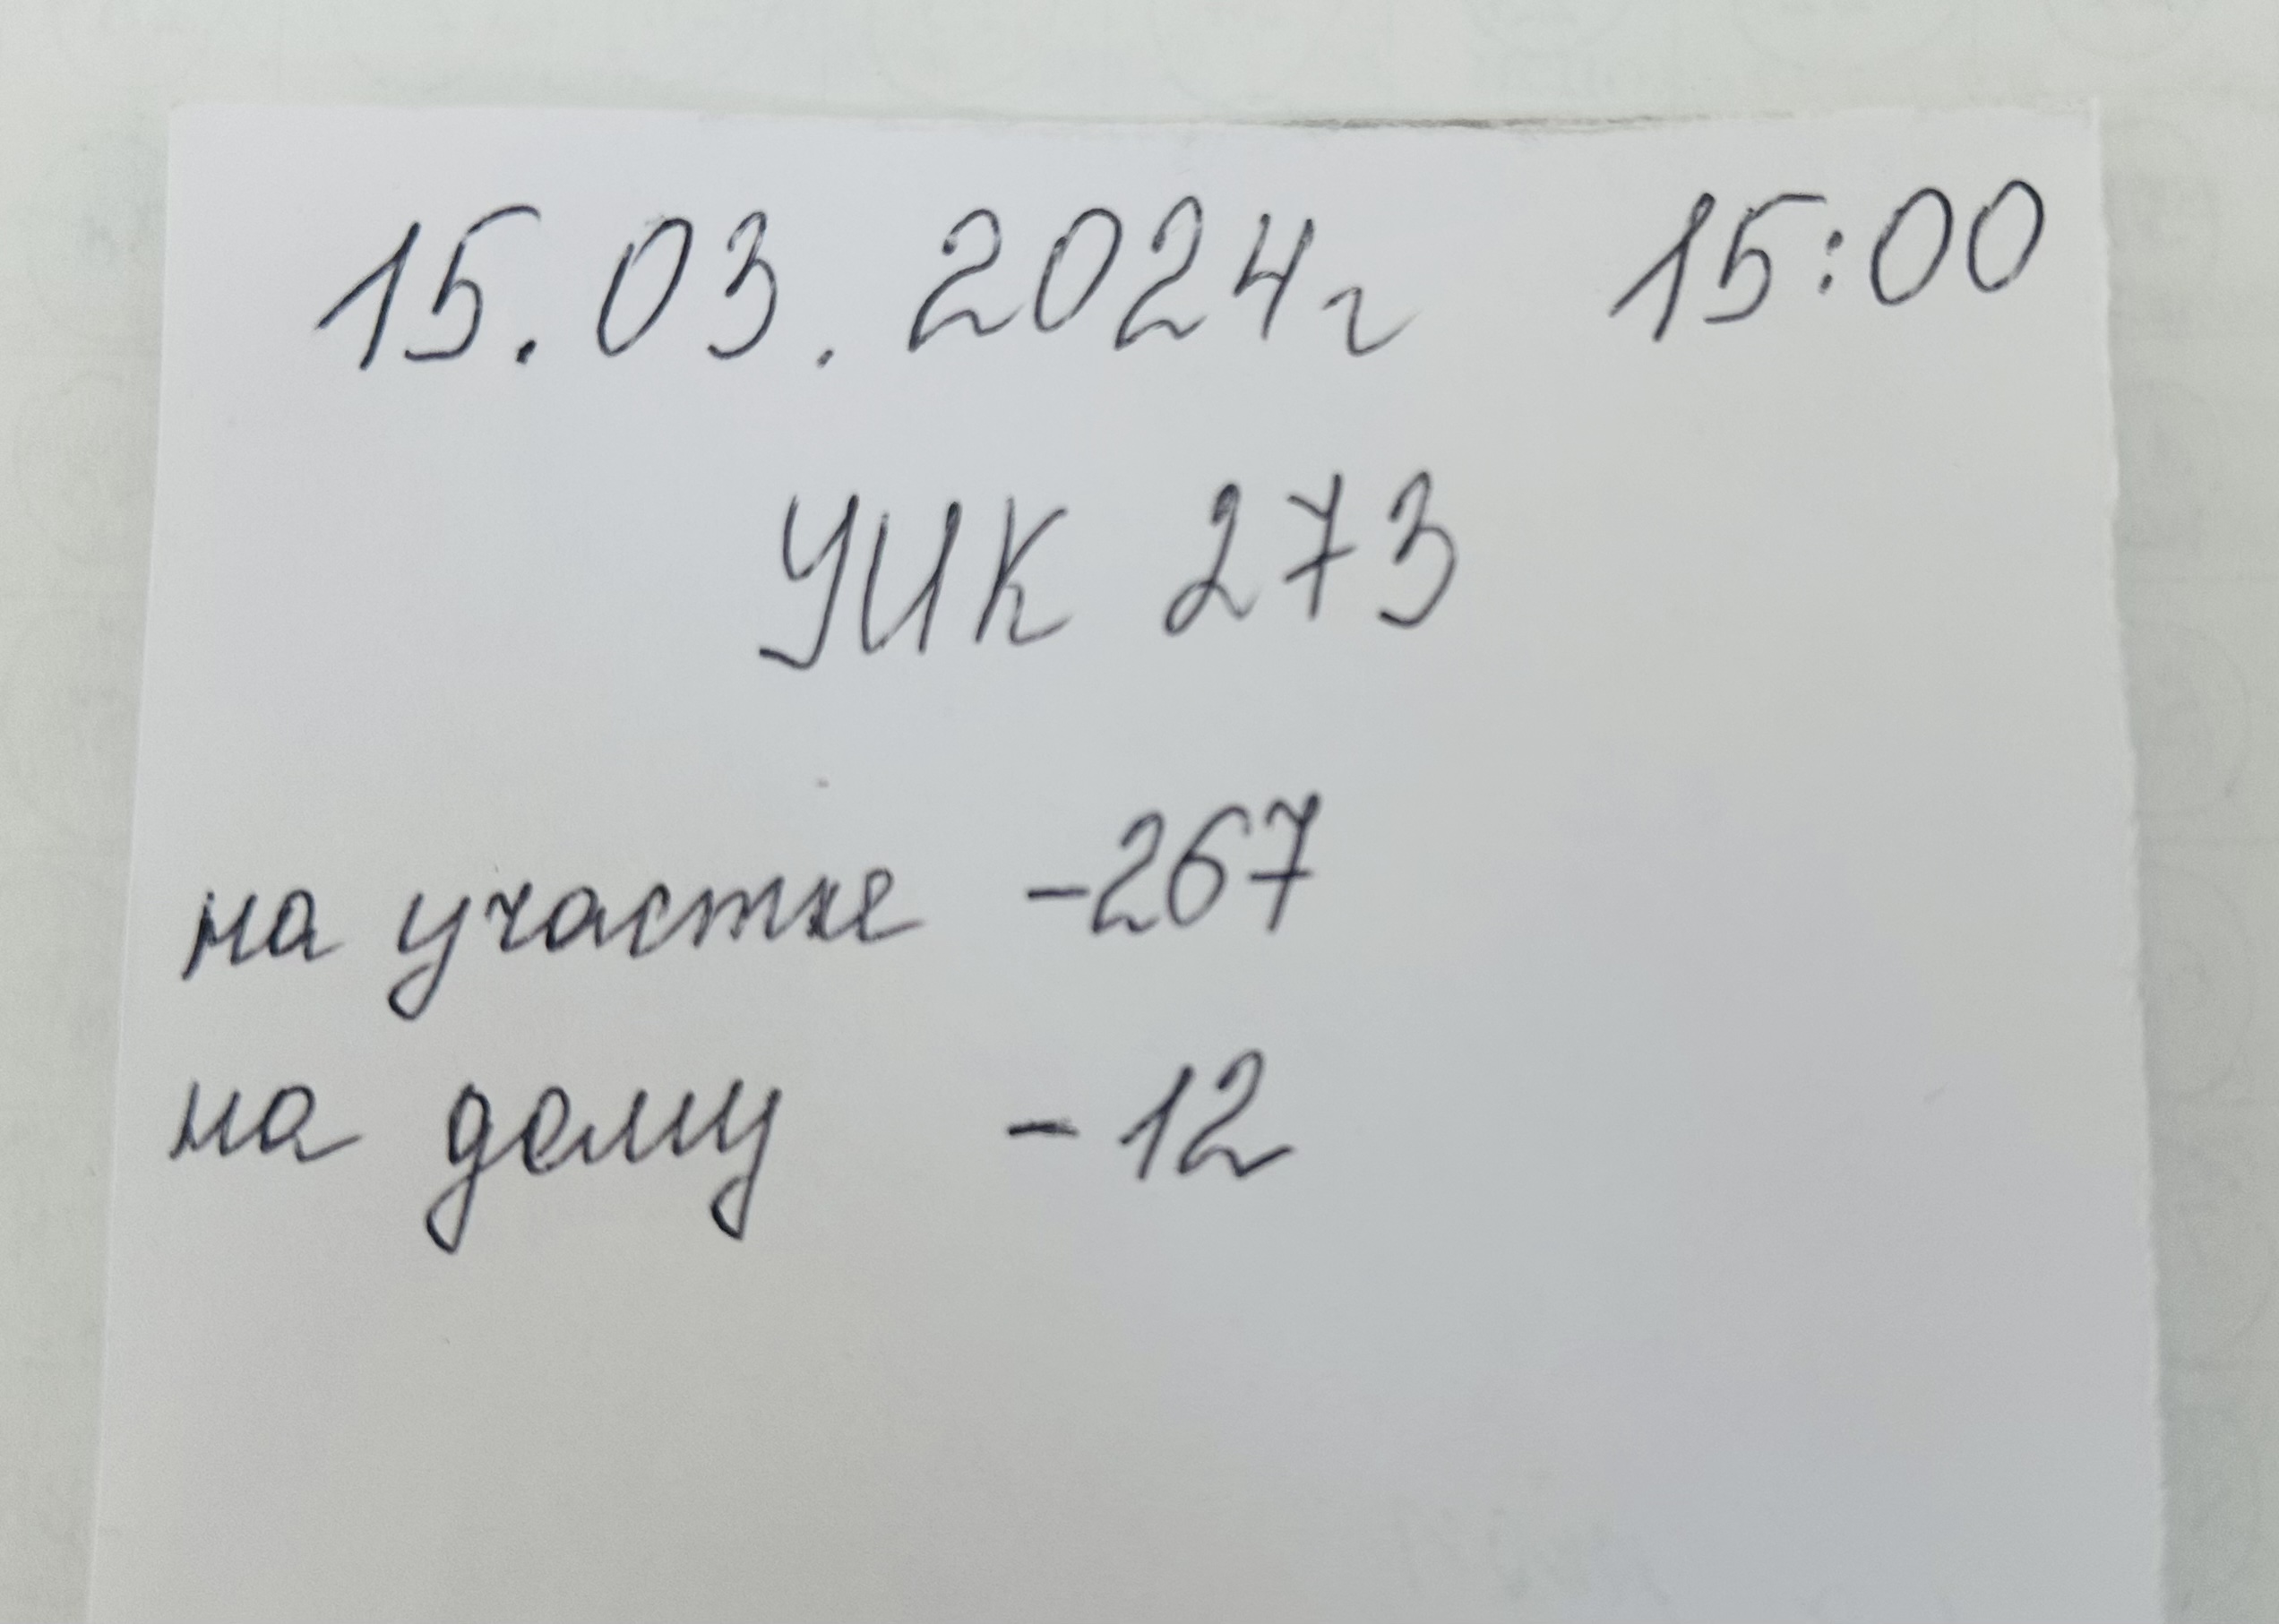 15.03.2024г 15:00
УИК 273
на участке -267
на дому -12